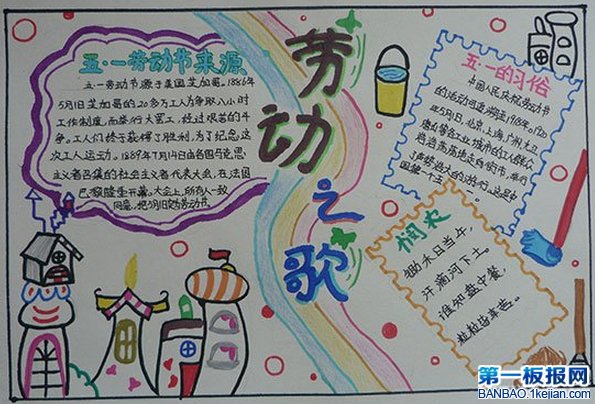 五·一劳动节来源
五一劳动节源于美国芝加哥。1886年
5月1日芝加哥的20多万工人为争取八小时
工作制度,而举行大罢工,经过艰苦的斗
争,工人们终于获得了胜利,为了纪念这
次工人运动。1889年7月14日由各国马克思
主义者召集的社会主义者代表大会,在法国
巴黎隆重开幕,大会上,所有人一致
同意,把5月1日
劳动之歌
五·一的习俗
中国人民庆祝劳动节
的活动可追溯至1918年。
年5月1日,北京,上海,广州,九江
唐山等各工业城市的工人群众
浩浩荡荡走向街市,举行
了声势浩大的游行
国第一个五一
悯农
锄禾日当午,
汗滴禾下土。
谁知盘中餐,
粒粒皆辛苦。
第一板报网
BANBAO.1kejian.com